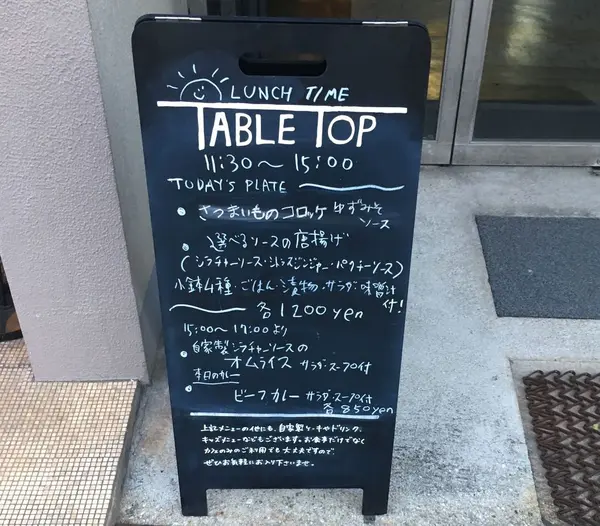 LUNCH TIME
TABLE TOP
11:30〜15:00
TODAY'S PLATE
・さつまいものコロッケ ゆずみそソース
・選べるソースの唐揚げ
(シラチャーソース・シトラスジンジャー・パクチーソース)
小鉢4種・ごはん・漬物・サラダ・味噌汁付!
各1200yen
15:00〜17:00より
・自家製シラチャーソースの
オムライス サラダ・スープ付
・本日のカレー
ビーフカレー サラダ・スープ付
各850yen
上記メニューの他にも、自家製ケーキやドリンク、
キッズメニューなどもございます。お食事だけでなく
カフェのみのご利用でも大丈夫ですので、
ぜひお気軽にお入り下さいませ。